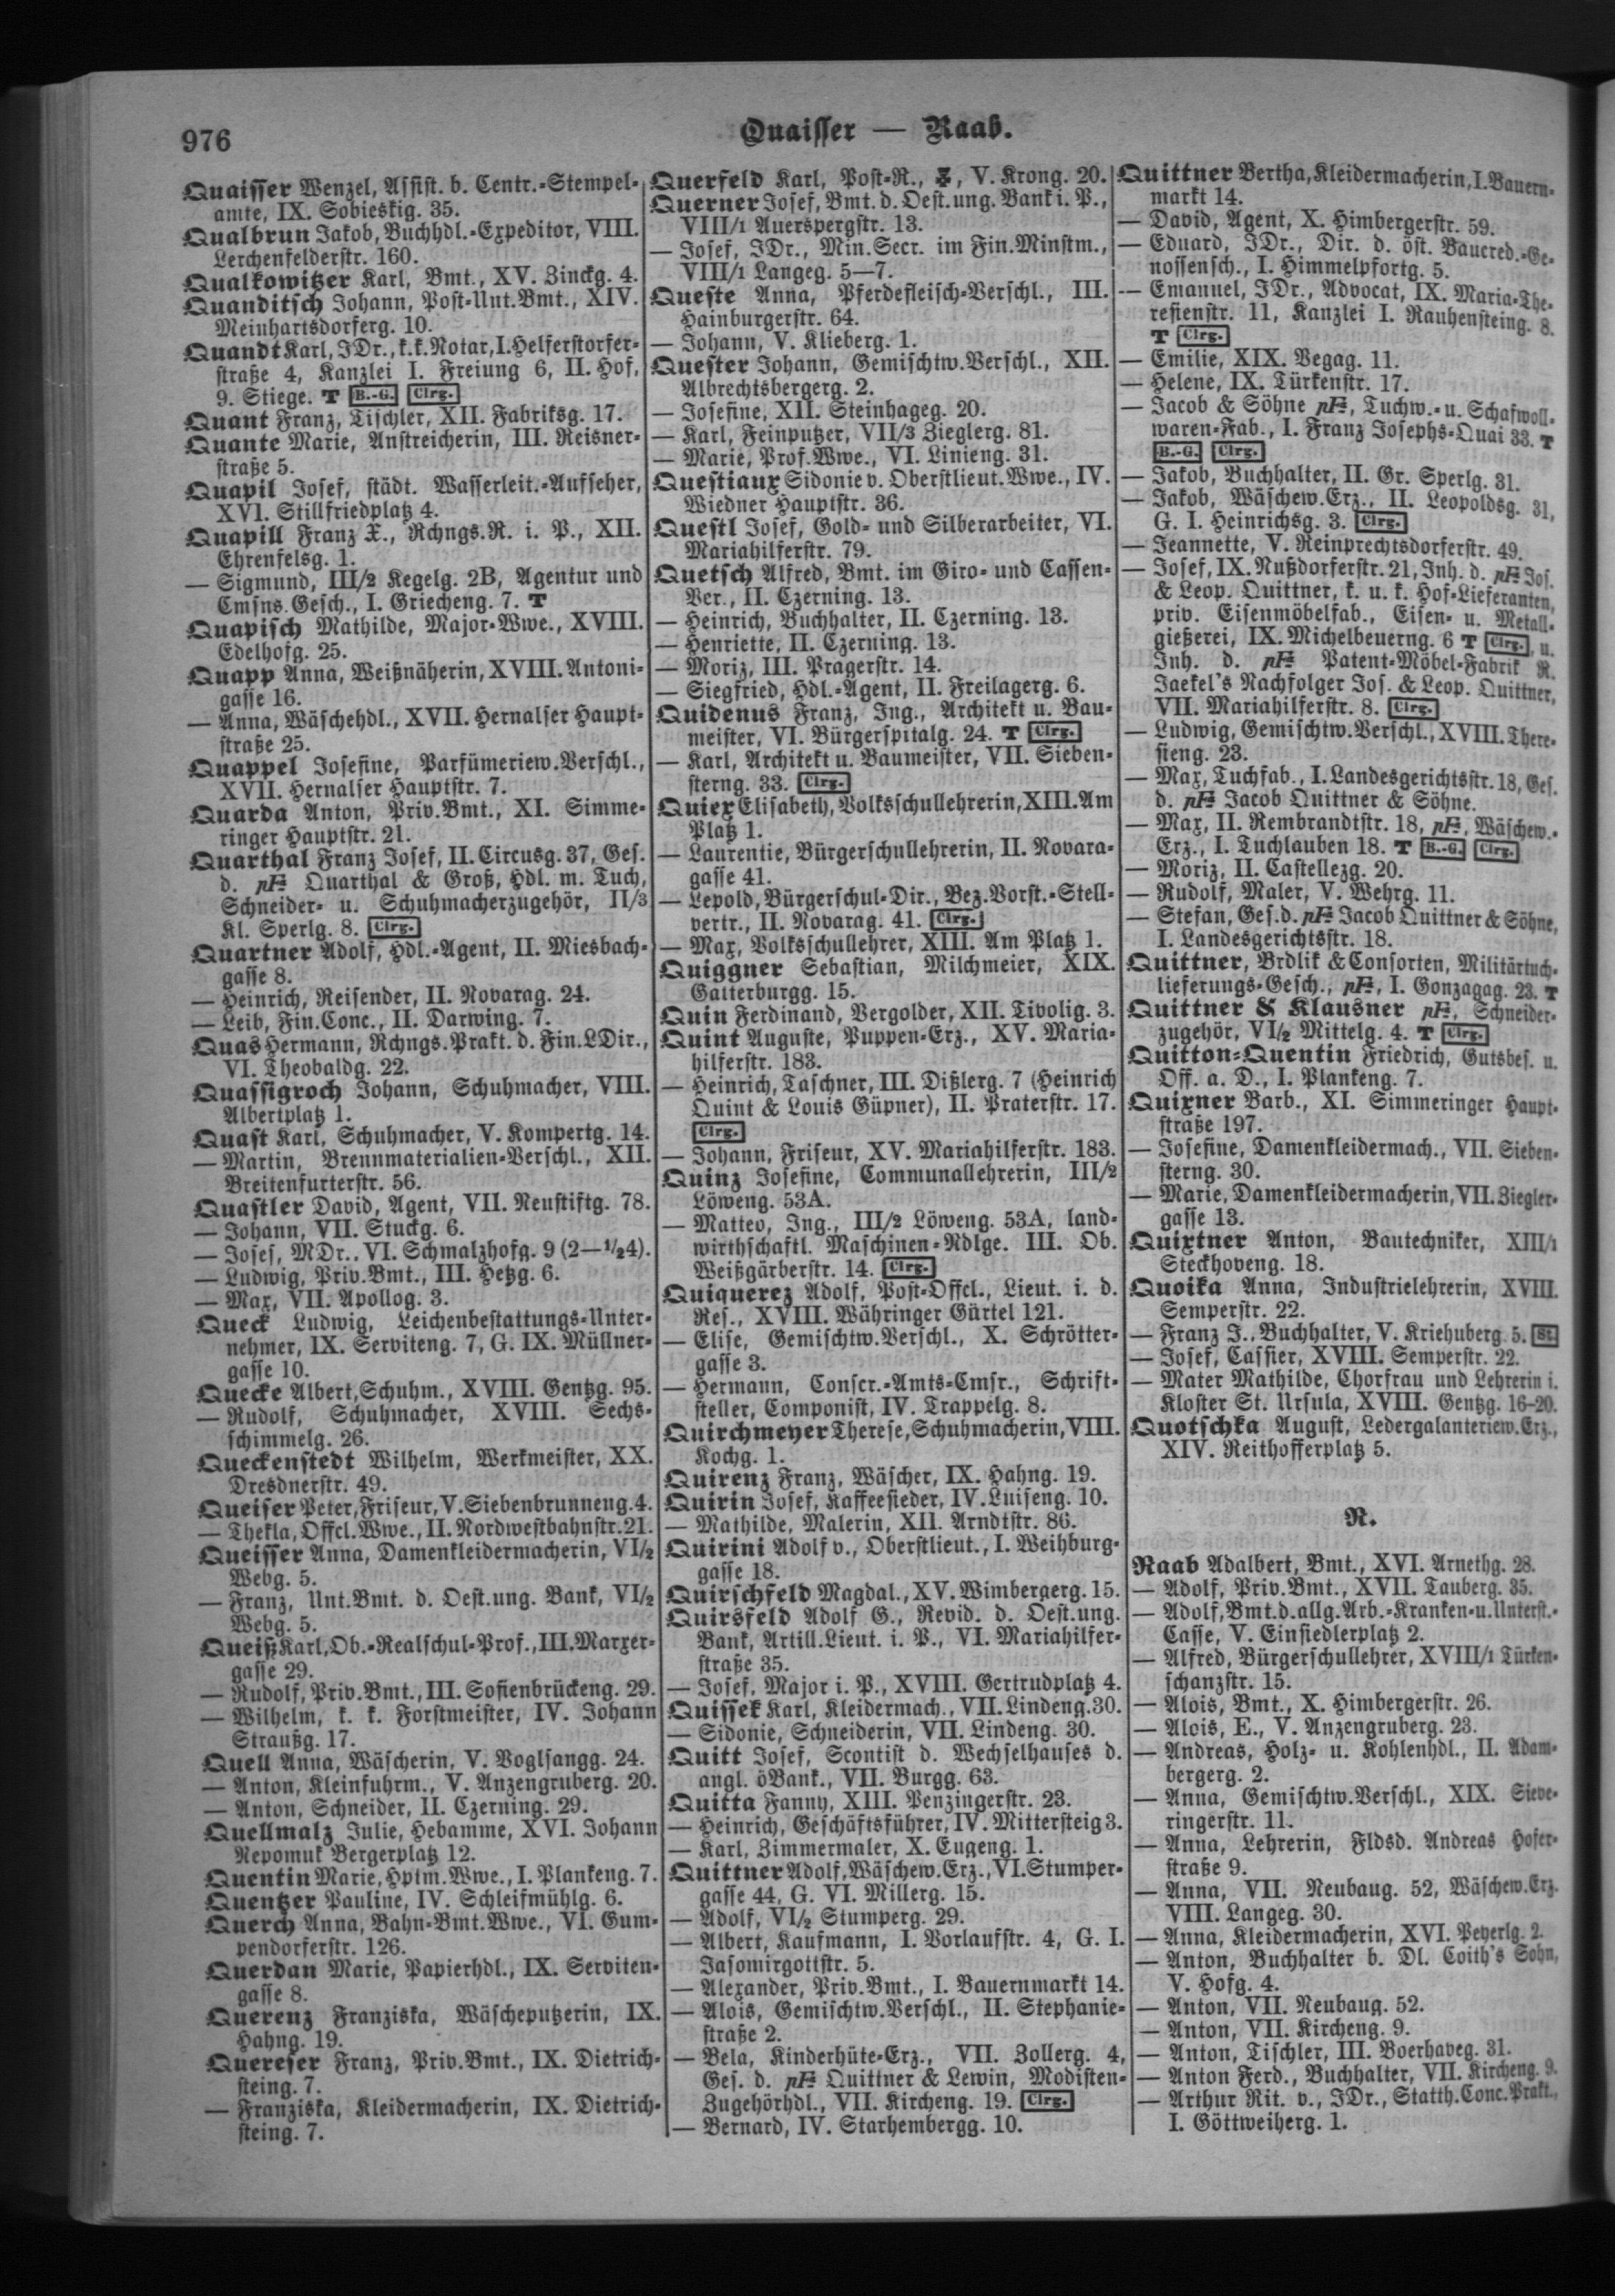 976
Quaisser — Raab.
Quaisser Wenzel, Assist. b. Centr.-Stempel-
amte, IX. Sobieskig. 35.
Qualbrun Jakob, Buchhdl.-Expeditor, VIII.
Lerchenfelderstr. 160.
Qualkowitzer Karl, Bmt., XV. Zinckg. 4.
Quanditsch Johann, Post-Unt.Bmt., XIV.
Meinhartsdorferg. 10.
Quandt Karl, JDr., k.k. Notar, I. Helferstorfer-
straße 4, Kanzlei I. Freiung 6, II. Hof,
9. Stiege. T B.-G. Clrg.
Quant Franz, Tischler, XII. Fabriksg. 17.
Quante Marie, Anstreicherin, III. Reisner-
straße 5.
Quapil Josef, städt. Wasserleit.-Aufseher,
XVI. Stillfriedplatz 4.
Quapill Franz X., Rchngs.R. i. P., XII.
Ehrenfelsg. 1.
— Sigmund, III/2 Kegelg. 2B, Agentur und
Cmsns.Gesch., I. Griecheng. 7. T
Quapisch Mathilde, Major-Wwe., XVIII.
Edelhofg. 25.
Quapp Anna, Weißnäherin, XVIII. Antoni-
gasse 16.
— Anna, Wäschehdl., XVII. Hernalser Haupt-
straße 25.
Quappel Josefine, Parfümeriew.Verschl.,
XVII. Hernalser Hauptstr. 7.
Quarda Anton, Priv.Bmt., XI. Simme-
ringer Hauptstr. 21.
Quarthal Franz Josef, II. Circusg. 37, Ges.
d. pF: Quarthal & Groß, Hdl. m. Tuch,
Schneider- u. Schuhmacherzugehör, II/3
Kl. Sperlg. 8. Clrg.
Quartner Adolf, Hdl.-Agent, II. Miesbach-
gasse 8.
— Heinrich, Reisender, II. Novarag. 24.
— Leib, Fin.Conc., II. Darwing. 7.
Quas Hermann, Rchngs.Prakt. d. Fin.LDir.,
VI. Theobaldg. 22.
Quassigroch Johann, Schuhmacher, VIII.
Albertplatz 1.
Quast Karl, Schuhmacher, V. Kompertg. 14.
— Martin, Brennmaterialien-Verschl., XII.
Breitenfurterstr. 56.
Quastler David, Agent, VII. Neustiftg. 78.
— Johann, VII. Stuckg. 6.
— Josef, MDr., VI. Schmalzhofg. 9 (2—1/24).
— Ludwig, Priv.Bmt., III. Hetzg. 6.
— Max, VII. Apollog. 3.
Queck Ludwig, Leichenbestattungs-Unter-
nehmer, IX. Serviteng. 7, G. IX. Müllner-
gasse 10.
Quecke Albert, Schuhm., XVIII. Gentzg. 95.
— Rudolf, Schuhmacher, XVIII. Sechs-
schimmelg. 26.
Queckenstedt Wilhelm, Werkmeister, XX.
Dresdnerstr. 49.
Queiser Peter, Friseur, V. Siebenbrunneng. 4.
— Thekla, Offcl.Wwe., II. Nordwestbahnstr. 21.
Queisser Anna, Damenkleidermacherin, VI/2
Webg. 5.
— Franz, Unt.Bmt. d. Oest.ung. Bank, VI/2
Webg. 5.
Queiß Karl, Ob.-Realschul-Prof., III. Marxer-
gasse 29.
— Rudolf, Priv.Bmt., III. Sofienbrückeng. 29.
— Wilhelm, k. k. Forstmeister, IV. Johann
Straußg. 17.
Quell Anna, Wäscherin, V. Voglsangg. 24.
— Anton, Kleinfuhrm., V. Anzengruberg. 20.
— Anton, Schneider, II. Czerning. 29.
Quellmalz Julie, Hebamme, XVI. Johann
Nepomuk Bergerplatz 12.
Quentin Marie, Hptm.Wwe., I. Plankeng. 7.
Quentzer Pauline, IV. Schleifmühlg. 6.
Querch Anna, Bahn-Bmt.Wwe., VI. Gum-
pendorferstr. 126.
Querdan Marie, Papierhdl., IX. Serviten-
gasse 8.
Querenz Franziska, Wäscheputzerin, IX.
Hahng. 19.
Quereser Franz, Priv.Bmt., IX. Dietrich-
steing. 7.
— Franziska, Kleidermacherin, IX. Dietrich-
steing. 7.
Querfeld Karl, Post-R., V. Krong. 20.
Querner Josef, Bmt. d. Oest.ung. Bank i. P.,
VIII/1 Auerspergstr. 13.
— Josef, JDr., Min.Secr. im Fin.Minstm.,
VIII/1 Langeg. 5—7.
Queste Anna, Pferdefleisch-Verschl., III.
Hainburgerstr. 64.
— Johann, V. Klieberg. 1.
Quester Johann, Gemischtw.Verschl., XII.
Albrechtsbergerg. 2.
— Josefine, XII. Steinhageg. 20.
— Karl, Feinputzer, VII/3 Zieglerg. 81.
— Marie, Prof.Wwe., VI. Linieng. 31.
Questiaux Sidonie v. Oberstlieut.Wwe., IV.
Wiedner Hauptstr. 36.
Questl Josef, Gold- und Silberarbeiter, VI.
Mariahilferstr. 79.
Quetsch Alfred, Bmt. im Giro- und Cassen-
Ver., II. Czerning. 13.
— Heinrich, Buchhalter, II. Czerning. 13.
— Henriette, II. Czerning. 13.
— Moriz, III. Pragerstr. 14.
— Siegfried, Hdl.-Agent, II. Freilagerg. 6.
Quidenus Franz, Ing., Architekt u. Bau-
meister, VI. Bürgerspitalg. 24. T Clrg.
— Karl, Architekt u. Baumeister, VII. Sieben-
sterng. 33. Clrg.
Quiex Elisabeth, Volksschullehrerin, XIII. Am
Platz 1.
— Laurentie, Bürgerschullehrerin, II. Novara-
gasse 41.
— Lepold, Bürgerschul-Dir., Bez.Vorst.-Stell-
vertr., II. Novarag. 41. Clrg.
— Max, Volksschullehrer, XIII. Am Platz 1.
Quiggner Sebastian, Milchmeier, XIX.
Gatterburgg. 15.
Quin Ferdinand, Vergolder, XII. Tivolig. 3.
Quint Auguste, Puppen-Erz., XV. Maria-
hilferstr. 183.
— Heinrich, Taschner, III. Dißlerg. 7 (Heinrich
Quint & Louis Güpner), II. Praterstr. 17.
Clrg.
— Johann, Friseur, XV. Mariahilferstr. 183.
Quinz Josefine, Communallehrerin, III/2
Löweng. 53A.
— Matteo, Ing., III/2 Löweng. 53A, land-
wirthschaftl. Maschinen-Ndlge. III. Ob.
Weißgärberstr. 14. Clrg.
Quiquerez Adolf, Post-Offcl., Lieut. i. d.
Res., XVIII. Währinger Gürtel 121.
— Elise, Gemischtw.Verschl., X. Schrötter-
gasse 3.
— Hermann, Conscr.-Amts-Cmsr., Schrift-
steller, Componist, IV. Trappelg. 8.
Quirchmeyer Therese, Schuhmacherin, VIII.
Kochg. 1.
Quirenz Franz, Wäscher, IX. Hahng. 19.
Quirin Josef, Kaffeesieder, IV. Luiseng. 10.
— Mathilde, Malerin, XII. Arndtstr. 86.
Quirini Adolf v., Oberstlieut., I. Weihburg-
gasse 18.
Quirschfeld Magdal., XV. Wimbergerg. 15.
Quirsfeld Adolf G., Revid. d. Oest.ung.
Bank, Artill.Lieut. i. P., VI. Mariahilfer-
straße 35.
— Josef, Major i. P., XVIII. Gertrudplatz 4.
Quissek Karl, Kleidermach., VII. Lindeng. 30.
— Sidonie, Schneiderin, VII. Lindeng. 30.
Quitt Josef, Scontist d. Wechselhauses d.
angl. öBank., VII. Burgg. 63.
Quitta Fanny, XIII. Penzingerstr. 23.
— Heinrich, Geschäftsführer, IV. Mittersteig 3.
— Karl, Zimmermaler, X. Eugeng. 1.
Quittner Adolf, Wäschew.Erz., VI. Stumper-
gasse 44, G. VI. Millerg. 15.
— Adolf, VI/2 Stumperg. 29.
— Albert, Kaufmann, I. Vorlaufstr. 4, G. I.
Jasomirgottstr. 5.
— Alexander, Priv.Bmt., I. Bauernmarkt 14.
— Alois, Gemischtw.Verschl., II. Stephanie-
straße 2.
— Bela, Kinderhüte-Erz., VII. Zollerg. 4,
Ges. d. pF: Quittner & Lewin, Modisten-
Zugehörhdl., VII. Kircheng. 19. Clrg.
— Bernard, IV. Starhembergg. 10.
Quittner Bertha, Kleidermacherin, I. Bauern-
markt 14.
— David, Agent, X. Himbergerstr. 59.
— Eduard, JDr., Dir. d. öst. Baucred.-Ge-
nossensch., I. Himmelpfortg. 5.
— Emanuel, JDr., Advocat, IX. Maria-The-
resienstr. 11, Kanzlei I. Rauhensteing. 8.
T Clrg.
— Emilie, XIX. Vegag. 11.
— Helene, IX. Türkenstr. 17.
— Jacob & Söhne pF:, Tuchw.- u. Schafwoll-
waren-Fab., I. Franz Josephs-Quai 33. T
B.-G. Clrg.
— Jakob, Buchhalter, II. Gr. Sperlg. 31.
— Jakob, Wäschew.Erz., II. Leopoldsg. 31,
G. I. Heinrichsg. 3. Clrg.
— Jeannette, V. Reinprechtsdorferstr. 49.
— Josef, IX. Nußdorferstr. 21, Inh. d. pF: Jos.
& Leop. Quittner, k. u. k. Hof-Lieferanten,
priv. Eisenmöbelfab., Eisen- u. Metall-
gießerei, IX. Michelbeuerng. 6 T Clrg., u.
Inh. d. pF: Patent-Möbel-Fabrik R.
Jaekel's Nachfolger Jos. & Leop. Quittner,
VII. Mariahilferstr. 8. Clrg.
— Ludwig, Gemischtw.Verschl., XVIII. There-
sieng. 23.
— Max, Tuchfab., I. Landesgerichtsstr. 18, Ges.
d. pF: Jacob Quittner & Söhne.
— Max, II. Rembrandtstr. 18, pF:, Wäschew.-
Erz., I. Tuchlauben 18. T B.-G. Clrg.
— Moriz, II. Castellezg. 20.
— Rudolf, Maler, V. Wehrg. 11.
— Stefan, Ges. d. pF: Jacob Quittner & Söhne,
I. Landesgerichtsstr. 18.
Quittner, Brdlik & Consorten, Militärtuch-
lieferungs-Gesch., pF:, I. Gonzagag. 23. T
Quittner & Klausner pF:, Schneider-
zugehör, VI/2 Mittelg. 4. T Clrg.
Quitton-Quentin Friedrich, Gutsbes. u.
Off. a. D., I. Plankeng. 7.
Quixner Barb., XI. Simmeringer Haupt-
straße 197.
— Josefine, Damenkleidermach., VII. Sieben-
sterng. 30.
— Marie, Damenkleidermacherin, VII. Ziegler-
gasse 13.
Quixtner Anton, Bautechniker, XIII/1
Steckhoveng. 18.
Quoika Anna, Industrielehrerin, XVIII.
Semperstr. 22.
— Franz J., Buchhalter, V. Kriehuberg. 5. St.
— Josef, Cassier, XVIII. Semperstr. 22.
— Mater Mathilde, Chorfrau und Lehrerin i.
Kloster St. Ursula, XVIII. Gentzg. 16-20.
Quotschka August, Ledergalanteriew.Erz.,
XIV. Reithofferplatz 5.
R.
Raab Adalbert, Bmt., XVI. Arnethg. 28.
— Adolf, Priv.Bmt., XVII. Tauberg. 35.
— Adolf, Bmt. d. allg. Arb.-Kranken- u. Unterst.-
Casse, V. Einsiedlerplatz 2.
— Alfred, Bürgerschullehrer, XVIII/1 Türken-
schanzstr. 15.
— Alois, Bmt., X. Himbergerstr. 26.
— Alois, E., V. Anzengruberg. 23.
— Andreas, Holz- u. Kohlenhdl., II. Adam-
bergerg. 2.
— Anna, Gemischtw.Verschl., XIX. Sieve-
ringerstr. 11.
— Anna, Lehrerin, Fldsd. Andreas Hofer-
straße 9.
— Anna, VII. Neubaug. 52, Wäschew.Erz.
VIII. Langeg. 30.
— Anna, Kleidermacherin, XVI. Peyerlg. 2.
— Anton, Buchhalter b. Dl. Coith's Sohn,
V. Hofg. 4.
— Anton, VII. Neubaug. 52.
— Anton, VII. Kircheng. 9.
— Anton, Tischler, III. Boerhaveg. 31.
— Anton Ferd., Buchhalter, VII. Kircheng. 9.
— Arthur Rit. v., JDr., Statth.Conc.Prakt.,
I. Göttweiherg. 1.